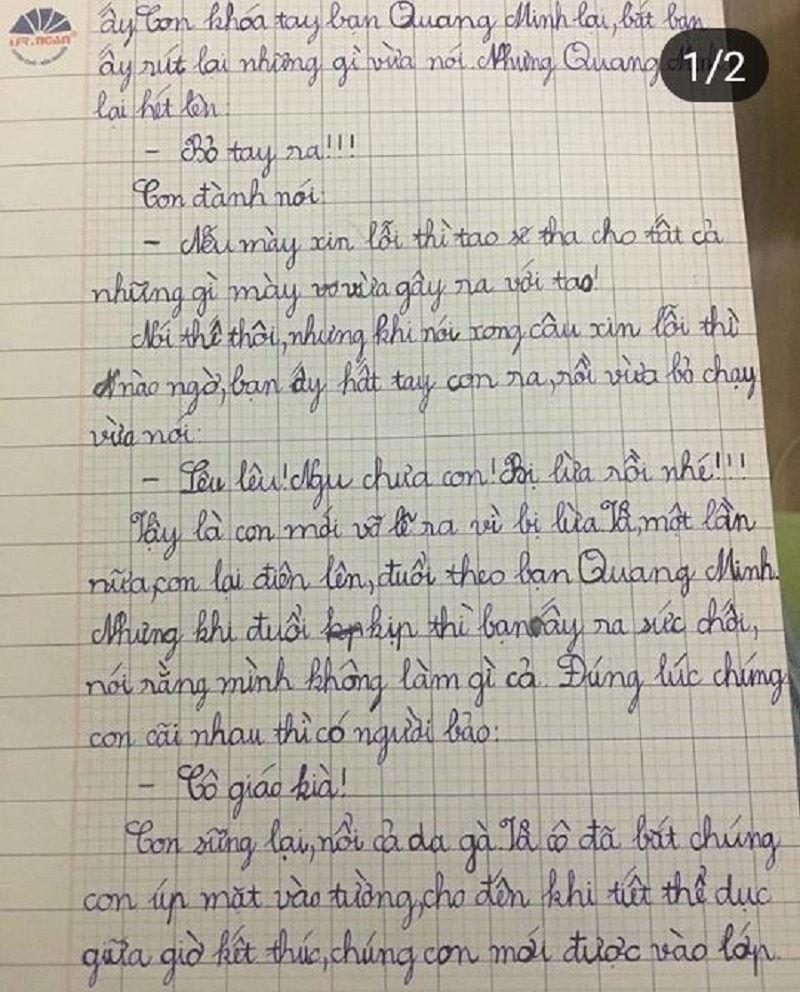 ấy. Con khóa tay bạn Quang Minh lại, bắt bạn
ấy rút lại những gì vừa nói. Nhưng Quang
1/2
lại hét lên:
– Bỏ tay ra!!!
Con đành nói:
– Nếu mày xin lỗi thì tao sẽ tha cho tất cả
những gì mày vừa gây ra với tao!
Nói thế thôi, nhưng khi nói xong câu xin lỗi thì
nào ngờ, bạn ấy hất tay con ra, rồi vừa bỏ chạy
vừa nói:
– Lêu lêu! Ngu chưa con! Bị lừa rồi nhé!!!
Vậy là con mới vỡ lẽ ra vì bị lừa. Và, một lần
nữa, con lại điên lên, đuổi theo bạn Quang Minh.
Nhưng khi đuổi kịp thì bạn ấy ra sức chối,
nói rằng mình không làm gì cả. Đúng lúc chúng
con cãi nhau thì có người bảo:
– Cô giáo kìa!
Con sững lại, nổi cả da gà. Và cô đã bắt chúng
con úp mặt vào tường, cho đến khi tiết thể dục
giữa giờ kết thúc, chúng con mới được vào lớp.